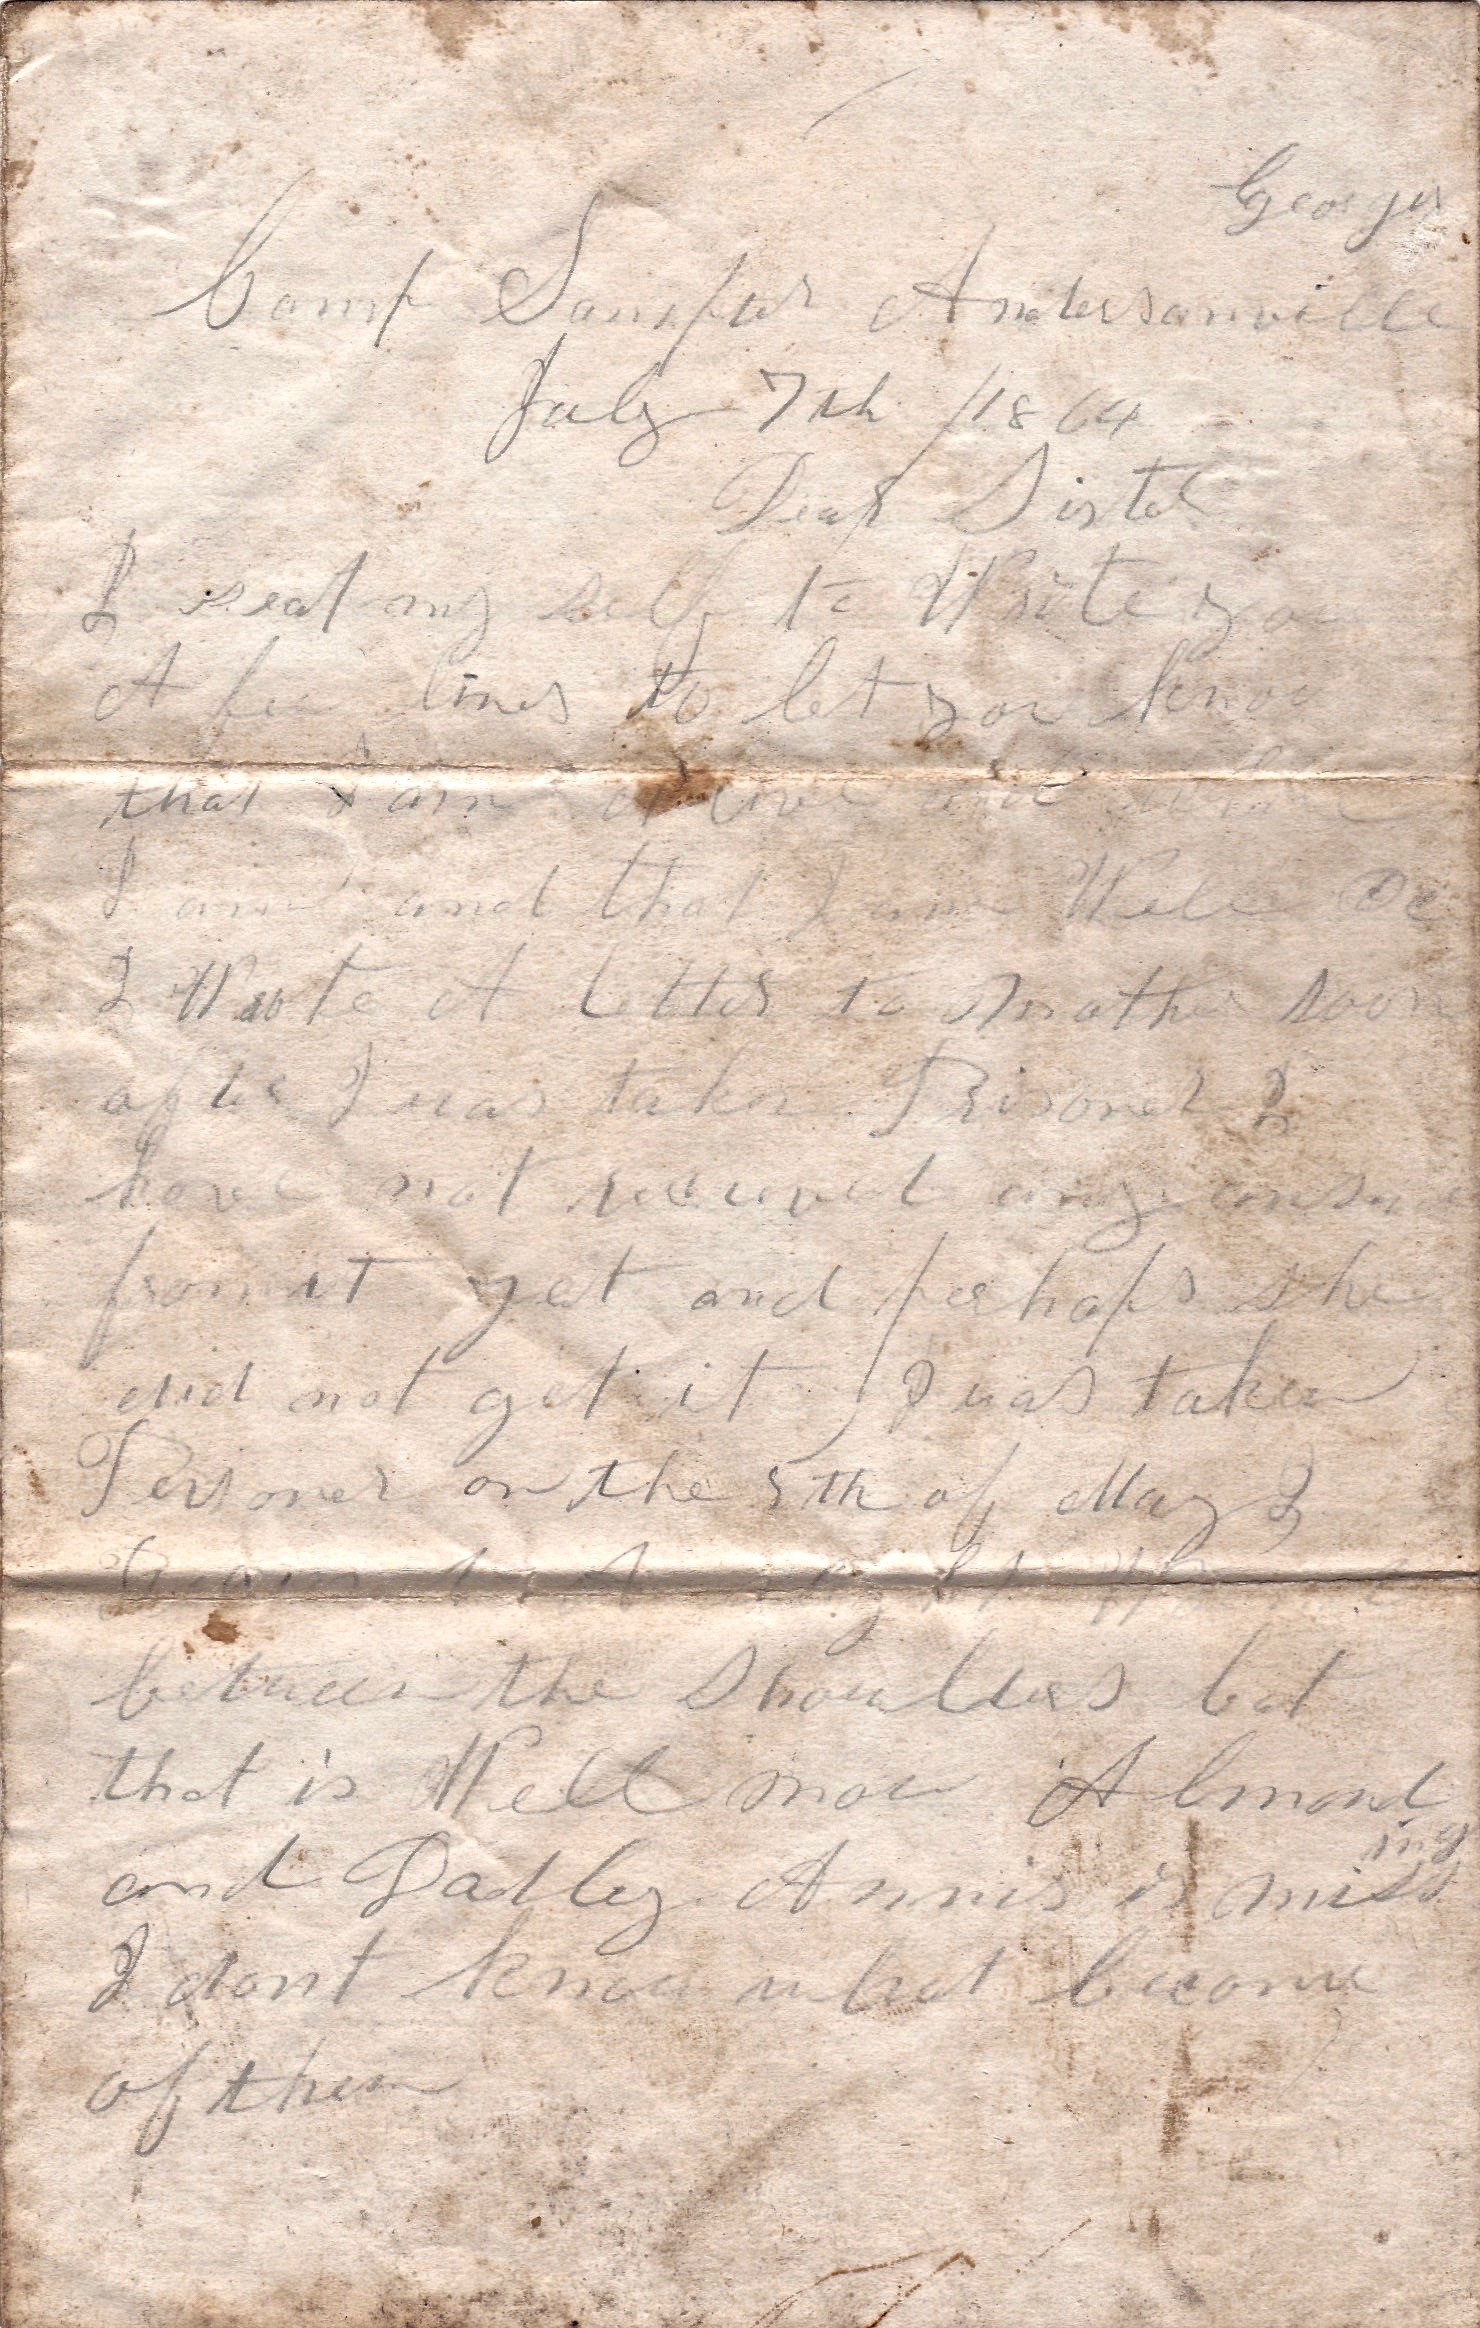 Georgia
Camp Sumpter Andersonville
July 7th /1864
Dear Sister
I seat my self to Write you
A few lines to let you know
that I am alive and where
I am and that I am Well
I Wrote A letter to Mother soon
after I was taken Prisoner I
have not received any answe
from it yet and perhaps she
did not get it I was taken
Prisoner on the 5th of May I
A
between the Shoulders but
that is Well now Almond
and Dadley Annis is missing
I dont know what become
of them